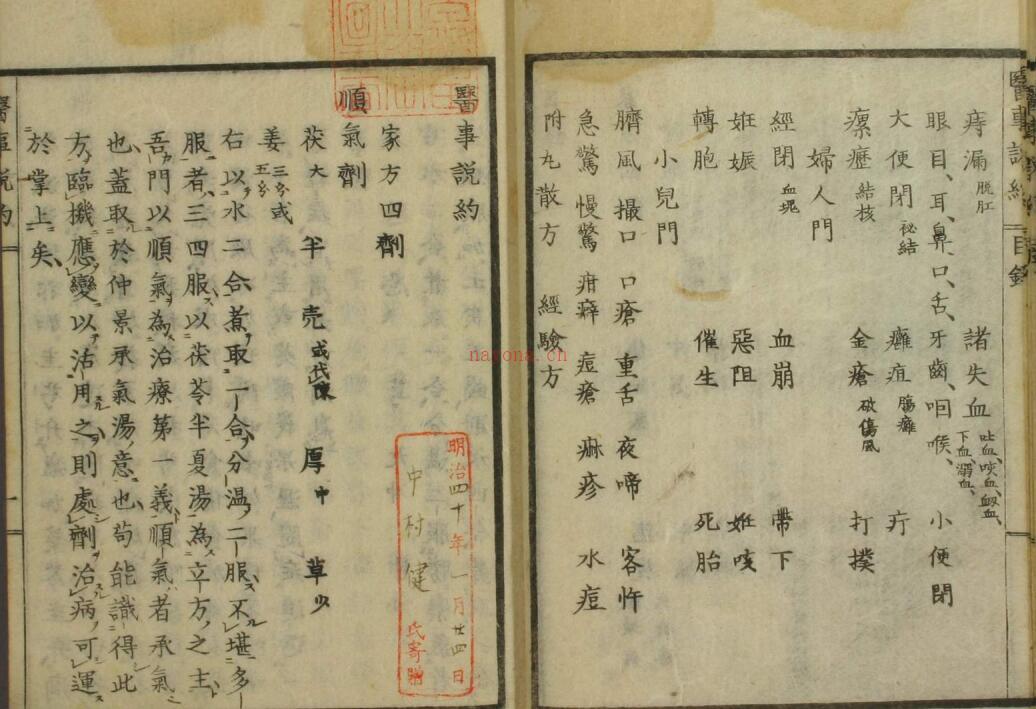 痔漏 脱肛 諸失血 吐血、咳血、衄血、下血、溺血、
眼目、耳、鼻、口、舌、牙齒、咽喉、 小便閉
大便閉 秘結 癰疽 腸癰 疔
瘰癧 結核 金瘡 破傷風 打撲
婦人門
經閉 血塊 血崩 帶下
姙娠 惡阻 姙咳
轉胞 催生 死胎
小兒門
臍風 撮口 口瘡 重舌 夜啼 客忤
急驚 慢驚 疳癖 痘瘡 痳疹 水痘
附丸散方 經驗方
醫事説約
家方四劑
順氣劑
茯大 半 壳或代陳 厚中 草少
姜三分或五分
右以水二合、煮取一合、分温、二服、不堪多
服者、三四服、以茯苓半夏湯為立方之主
吾門以順氣為治療第一義、順氣者承氣
也、蓋取於仲景承氣湯、意也、苟能識得此
方、臨機應變以活用之、則處劑治病、可運
於掌上矣、
明治四十年一月廿四日
中村健
氏寄贈
醫事説約
一
nayona.ch